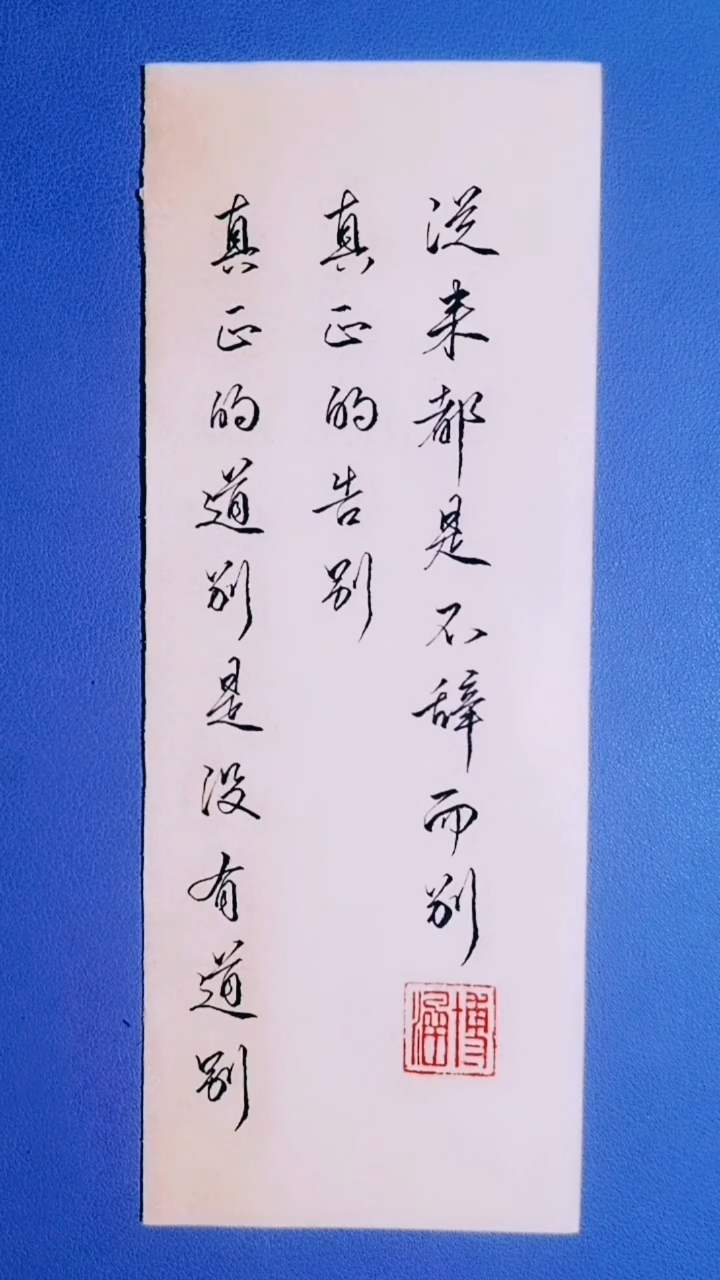 真正的道别是没有道别
真正的告别
従来都是不辞而别
博涵